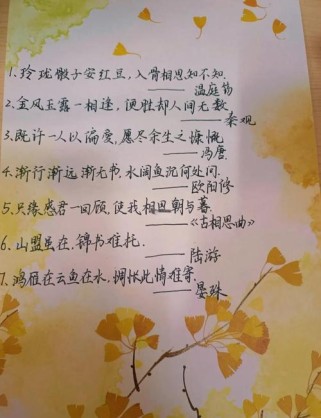 1.玲珑骰子安红豆，入骨相思知不知.
——温庭筠
2.金风玉露一相逢，便胜却人间无数
——秦观
3.既许一人以偏爱，愿尽余生之慷慨
——冯唐.
4.渐行渐远渐无书，水阔鱼沉何处问.
——欧阳修
5.只缘感君一回顾，使我相思朝与暮.
——《古相思曲》
6.山盟虽在，锦书难托.
——陆游
7.鸿雁在云鱼在水，惆怅此情难寄.
——晏殊